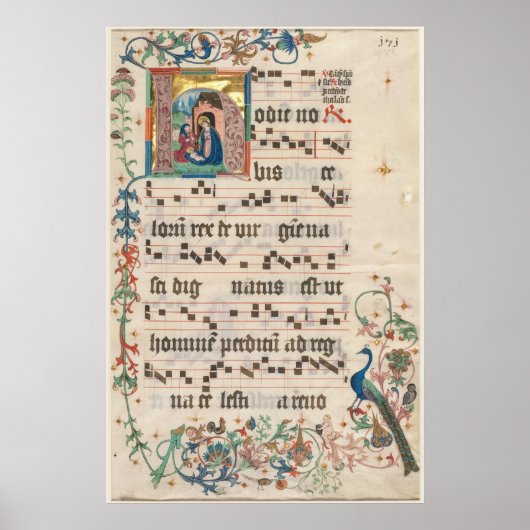 171
odie no
bis ce
lorū rex de vir gīe na
sci dig natus est ut
hominē perditū ad reg
na ce lesti a revo